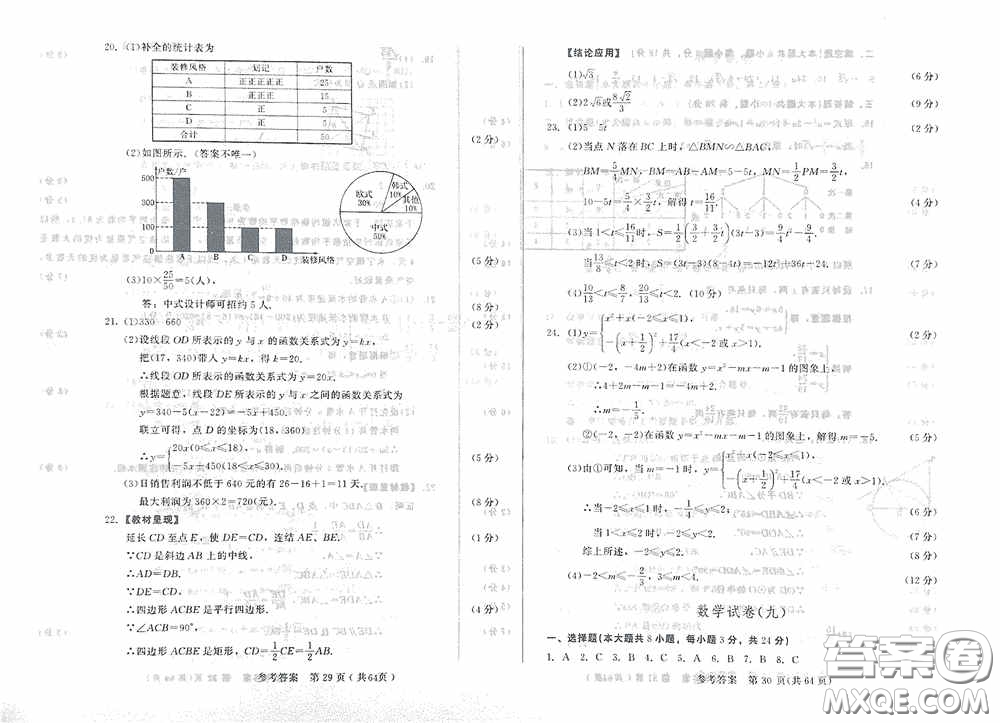 20. (1)补全的统计表为
装修风格 划记 户数
A 正正正正正 25
B 正正正 15
C 正 5
D 正 5
合计 / 50
(2分)
(2)如图所示.(答案不唯一)
户数/户
500
400
300
200
100
0
A B C D 装修风格
欧式 30%
韩式 10%
其他 10%
中式 50%
(5分)
(3)10×25/50=5(人).
答：中式设计师可招约5人.
(8分)
21. (1)330 660 (2分)
(2)设线段OD所表示的y与x的函数关系式为y=kx,
把(17，340)带入y=kx，得k=20.
∴线段OD所表示的函数关系式为y=20x.
根据题意，线段DE所表示的y与x之间的函数关系式为
y=340-5(x-22)=-5x+450.
联立可得，点D的坐标为(18，360)
∴y={20x(0≤x≤18), -5x+450(18<x≤30). (5分)
(3)日销售利润不低于640元的有26-16+1=11天.
最大利润为360×2=720(元). (8分)
22. 【教材呈现】
延长CD至点E，使DE=CD，连结AE、BE. (1分)
∵CD是斜边AB上的中线，
∴AD=DB.
∵DE=CD，
∴四边形ACBE是平行四边形. (4分)
∵∠ACB=90°，
∴四边形ACBE是矩形，CD=1/2CE=1/2AB.
参考答案 第29页(共64页)
【结论应用】
(1)√3 (6分)
(2)2√6或8√2/3 (9分)
23. (1)5-5t (2分)
(2)当点N落在BC上时，△BMN∽△BAC，
BM=5/4MN，BM=AB-AM=5-5t，MN=1/2PM=3/2t，
10-5t=5/4×3/2t，解得t=16/11. (4分)
(3)当1<t≤16/11时，S=1/2(3/2+3/2t)(3t-3)=9/4t²-9/4.
当13/8≤t<2时，S=(3t-3)(8-4t)=-12t²+36t-24. (7分)
(4)10/13<t<8/7，4/3<t<2. (10分)
24. (1)y={x²+x(-2≤x≤1), -(x+1/2)²+17/4(x<-2或x>1). (2分)
(2)①(-2，-4m+2)在函数y=x²-mx-m-1的图象上，
∴4+2m-m-1=-4m+2.
∴m=-1/5. (4分)
②(-2，-4m+2)在函数y=x²-mx-m-1的图象上，解得m=-5. (5分)
(3)由①可知，当m=-1时，y={x²+x(-2≤x≤1), -(x+1/2)²+17/4(x<-2或x>1). (6分)
当-2≤x≤1时，-1/4≤y≤2.
当1<x≤2时，-2≤y<2. (7分)
综上所述，-2≤y≤2. (8分)
(4)-2<m≤-2/3，3≤m≤4. (12分)
数学试卷(九)
一、选择题(本大题共8小题，每小题3分，共24分)
1. A 2. C 3. B 4. C 5. B 6. A 7. C 8. B
参考答案 第30页(共64页)
答案圈
MXQE.COM